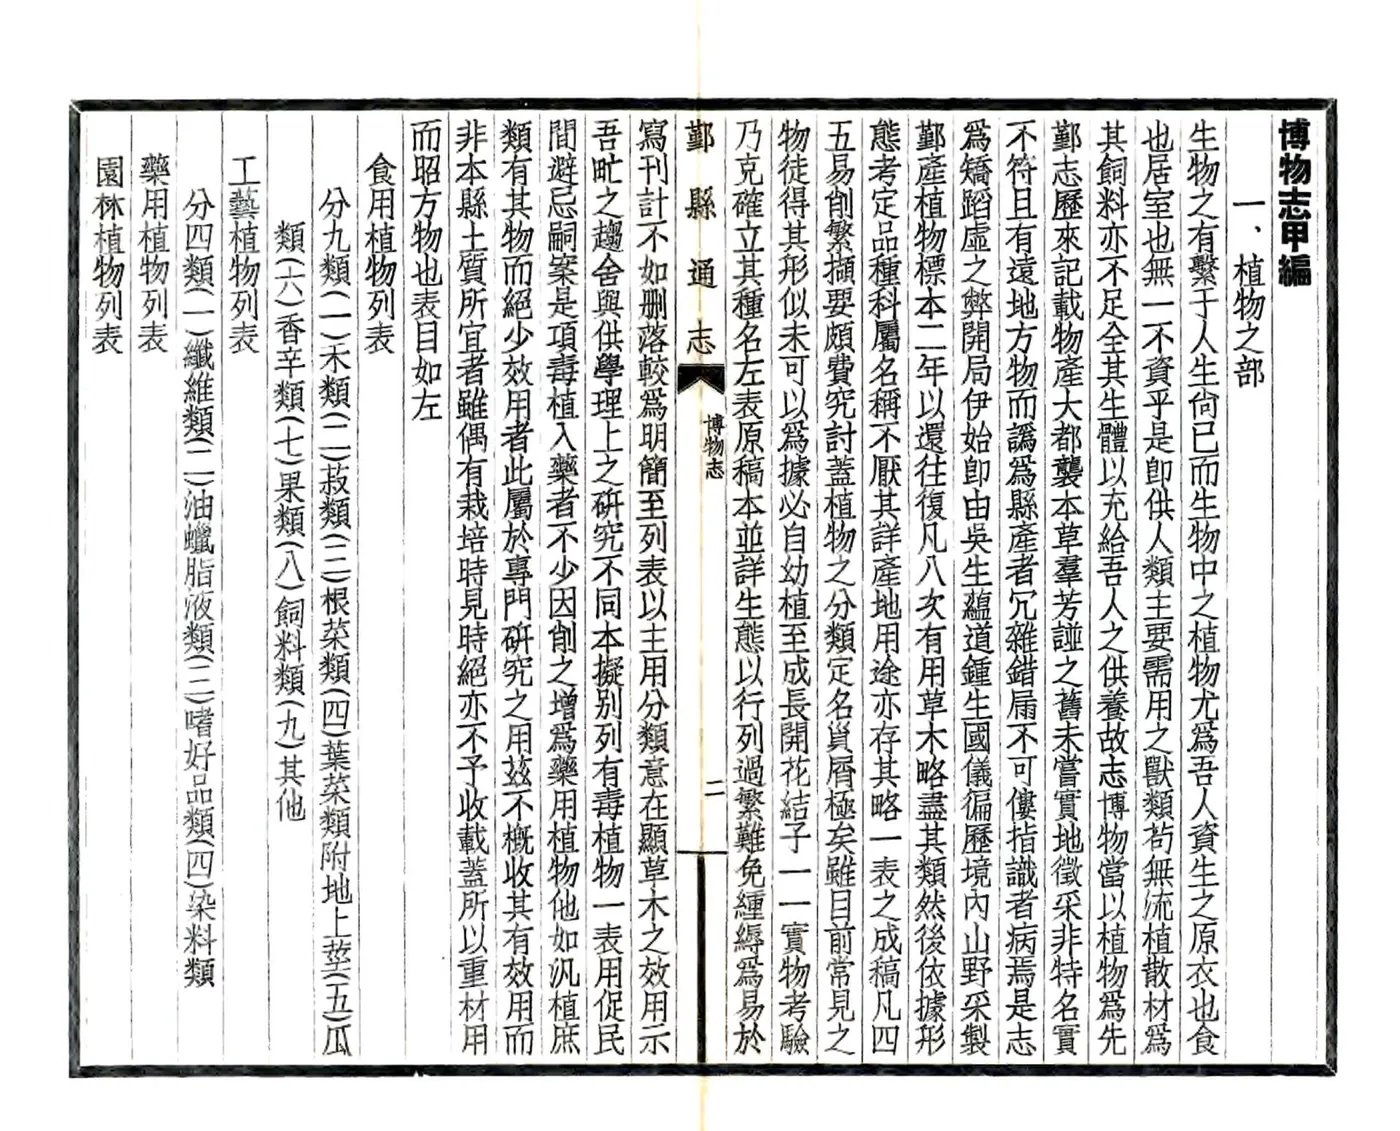 博物志甲編
一、植物之部
生物之有繫于人生尙已而生物中之植物尤爲吾人資生之原衣也食
也居室也無一不資乎是卽供人類主要需用之獸類苟無流植散材爲
其飼料亦不足全其生體以充給吾人之供養故志博物當以植物爲先
鄞志歷來記載物產大都襲本草羣芳諩之舊未嘗實地徵采非特名實
不符且有遠地方物而譌爲縣產者冗雜錯扇不可僂指識者病焉是志
爲矯蹈虛之弊開局伊始卽由吳生蘊道鍾生國儀徧歷境內山野采製
鄞產植物標本二年以還往復凡八次有用草木略盡其類然後依據形
態考定品種科屬名稱不厭其詳產地用途亦存其略一表之成稿凡四
五易削繁擷要頗費究討蓋植物之分類定名巽屑極矣雖目前常見之
物徒得其形似未可以爲據必自幼植至成長開花結子一一實物考驗
乃克確立其種名左表原稿本並詳生態以行列過繁難免緟縟爲易於
鄞縣通志
博物志
二
寫刊計不如删落較爲明簡至列表以主用分類意在顯草木之效用示
吾甿之趨舍與供學理上之硏究不同本擬别列有毒植物一表用促民
間避忌嗣案是項毒植入藥者不少因削之增爲藥用植物他如汎植庶
類有其物而絕少效用者此屬於專門硏究之用茲不槪收其有效用而
非本縣土質所宜者雖偶有栽培時見時絕亦不予收載蓋所以重材用
而昭方物也表目如左
食用植物列表
分九類(一)禾類(二)菽類(三)根菜類(四)葉菜類附地上莖(五)瓜
類(六)香辛類(七)果類(八)飼料類(九)其他
工藝植物列表
分四類(一)纖維類(二)油蠟脂液類(三)嗜好品類(四)染料類
藥用植物列表
園林植物列表